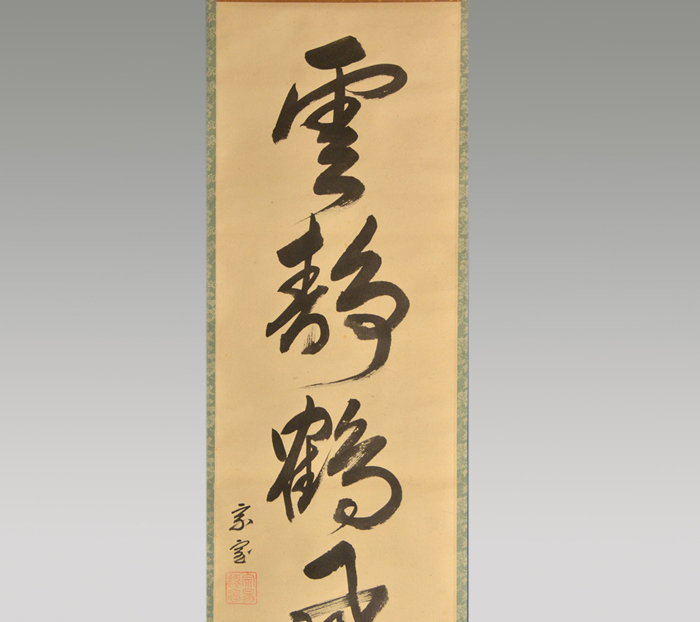 雲静鶴
宗家